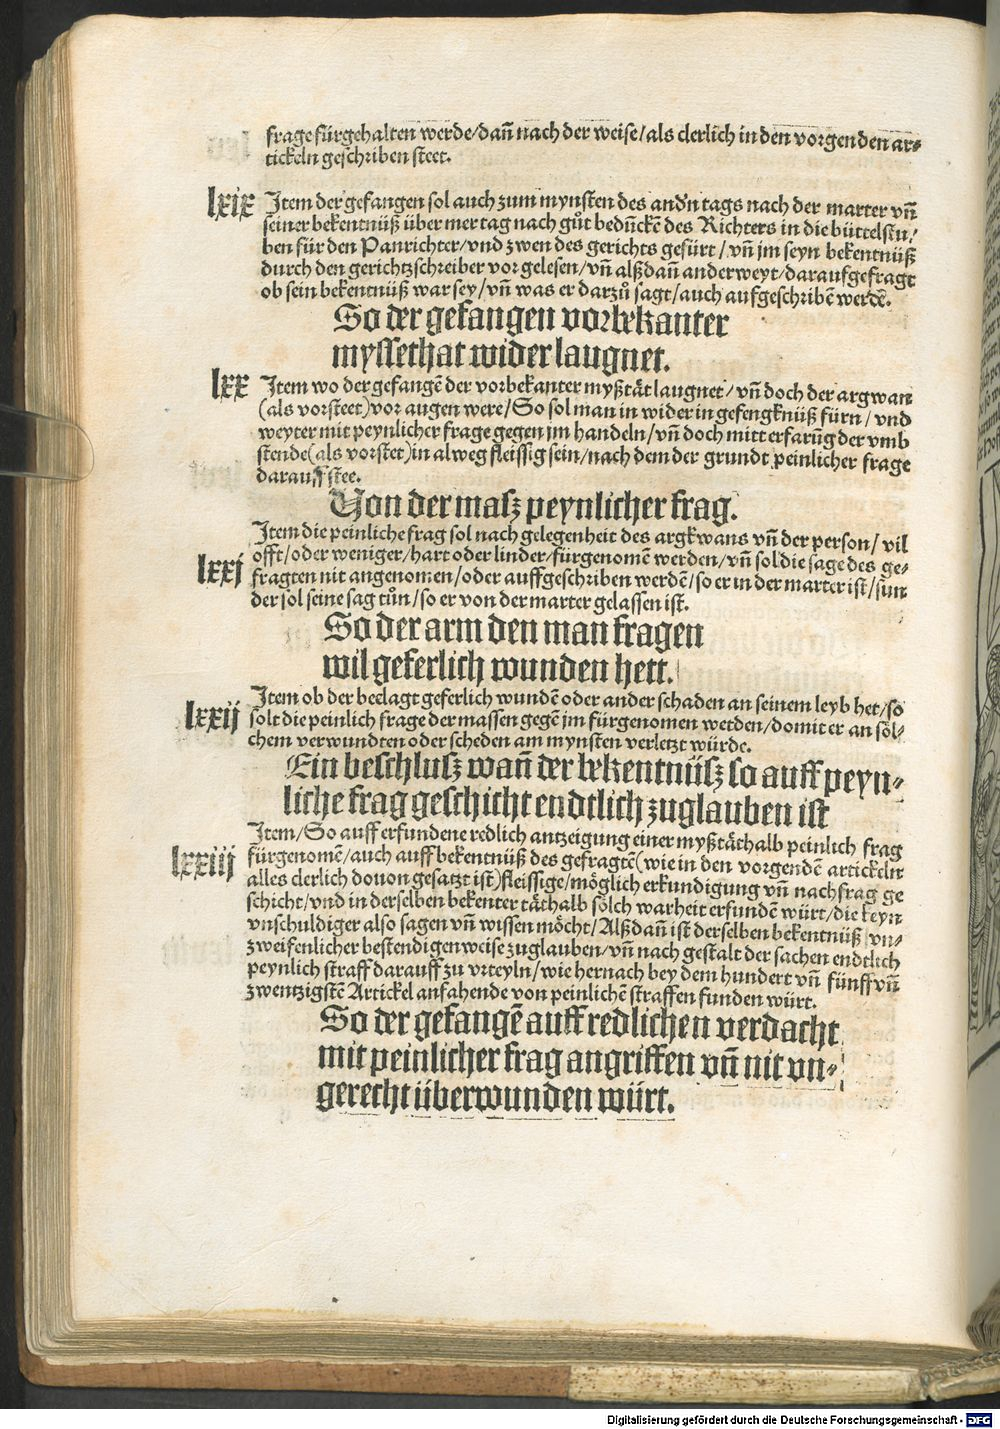 frage fürgehalten werde/dañ nach der weise/als clerlich in den vorgenden ar⸗
tickeln geschriben steet.
lxix Item der gefangen sol auch zum mynsten des and'n tags nach der marter vñ
seiner bekentnüß über mer tag nach gůt bedückē des Richters in die büttelstu⸗
ben für den Panrichter/vnd zwen des gerichts gefürt/vñ jm seyn bekentnüß
durch den gerichtzschreiber vorgelesen/vñ alßdañ anderweyt/darauf gefragt
ob sein bekentnüß war sey/vñ was er darzů sagt/auch aufgeschribē werdē.
So der gefangen vorbekanter
myssethat wider laugnet.
lxx Item wo der gefangē der vorbekanter myßtāt laugnet/vñ doch der argwan
(als vorsteet) vor augen were/So sol man in wider in gefengknüß fürn/vnd
weyter mit peynlicher frage gegen jm handeln/vñ doch mitt erfarūg der vmb
stende(als vorstet)in alweg fleissig sein/nach dem der grundt peinlicher frage
darauff stee.
Von der masz peynlicher frag.
Item die peinliche frag sol nach gelegenheit des argkwans vñ der person/vil
lxxj offt/oder weniger/hart oder linder/fürgenomē werden/vñ sol die sage des ge⸗
fragten nit angenomen/oder auffgeschriben werdē/so er in der marter ist/sun
der sol seine sag tůn/so er von der marter gelassen ist.
So der arm den man fragen
wil geferlich wunden hett.
Item ob der beclagt geferlich wundē oder ander schaden an seinem leyb het/so
lxxij solt die peinlich frage der massen gegē jm fürgenomen werden/domit er an söl⸗
chem verwundten oder scheden am mynsten verletzt würde.
Ein beschlusz wañ der bekentnüsz so auff peyn⸗
liche frag geschicht endtlich zuglauben ist
Item/So auff erfundene redlich antzeigung einer myßtāthalb peinlich frag
lxxiij fürgenomē/auch auff bekentnüß des gefragtē(wie in den vorgendē artickeln
alles clerlich douon gesatzt ist)fleissige/möglich erkundigung vñ nachfrag ge
schicht/vnd in derselben bekenter tāthalb sölch warheit erfundē würt/die keyn
vnschuldiger also sagen vñ wissen möcht/Alßdañ ist derselben bekentnüß vn⸗
zweifenlicher bestendigen weise zuglauben/vñ nach gestalt der sachen endtlich
peynlich straff darauff zu vrteyln/wie hernach bey dem hundert vñ fünff vñ
zwentzigstē Artickel anfahende von peinlichē straffen funden würt.
So der gefangē auff redlichen verdacht
mit peinlicher frag angriffen vñ nit vn⸗
gerecht überwunden würt.
Digitalisierung gefördert durch die Deutsche Forschungsgemeinschaft - DFG